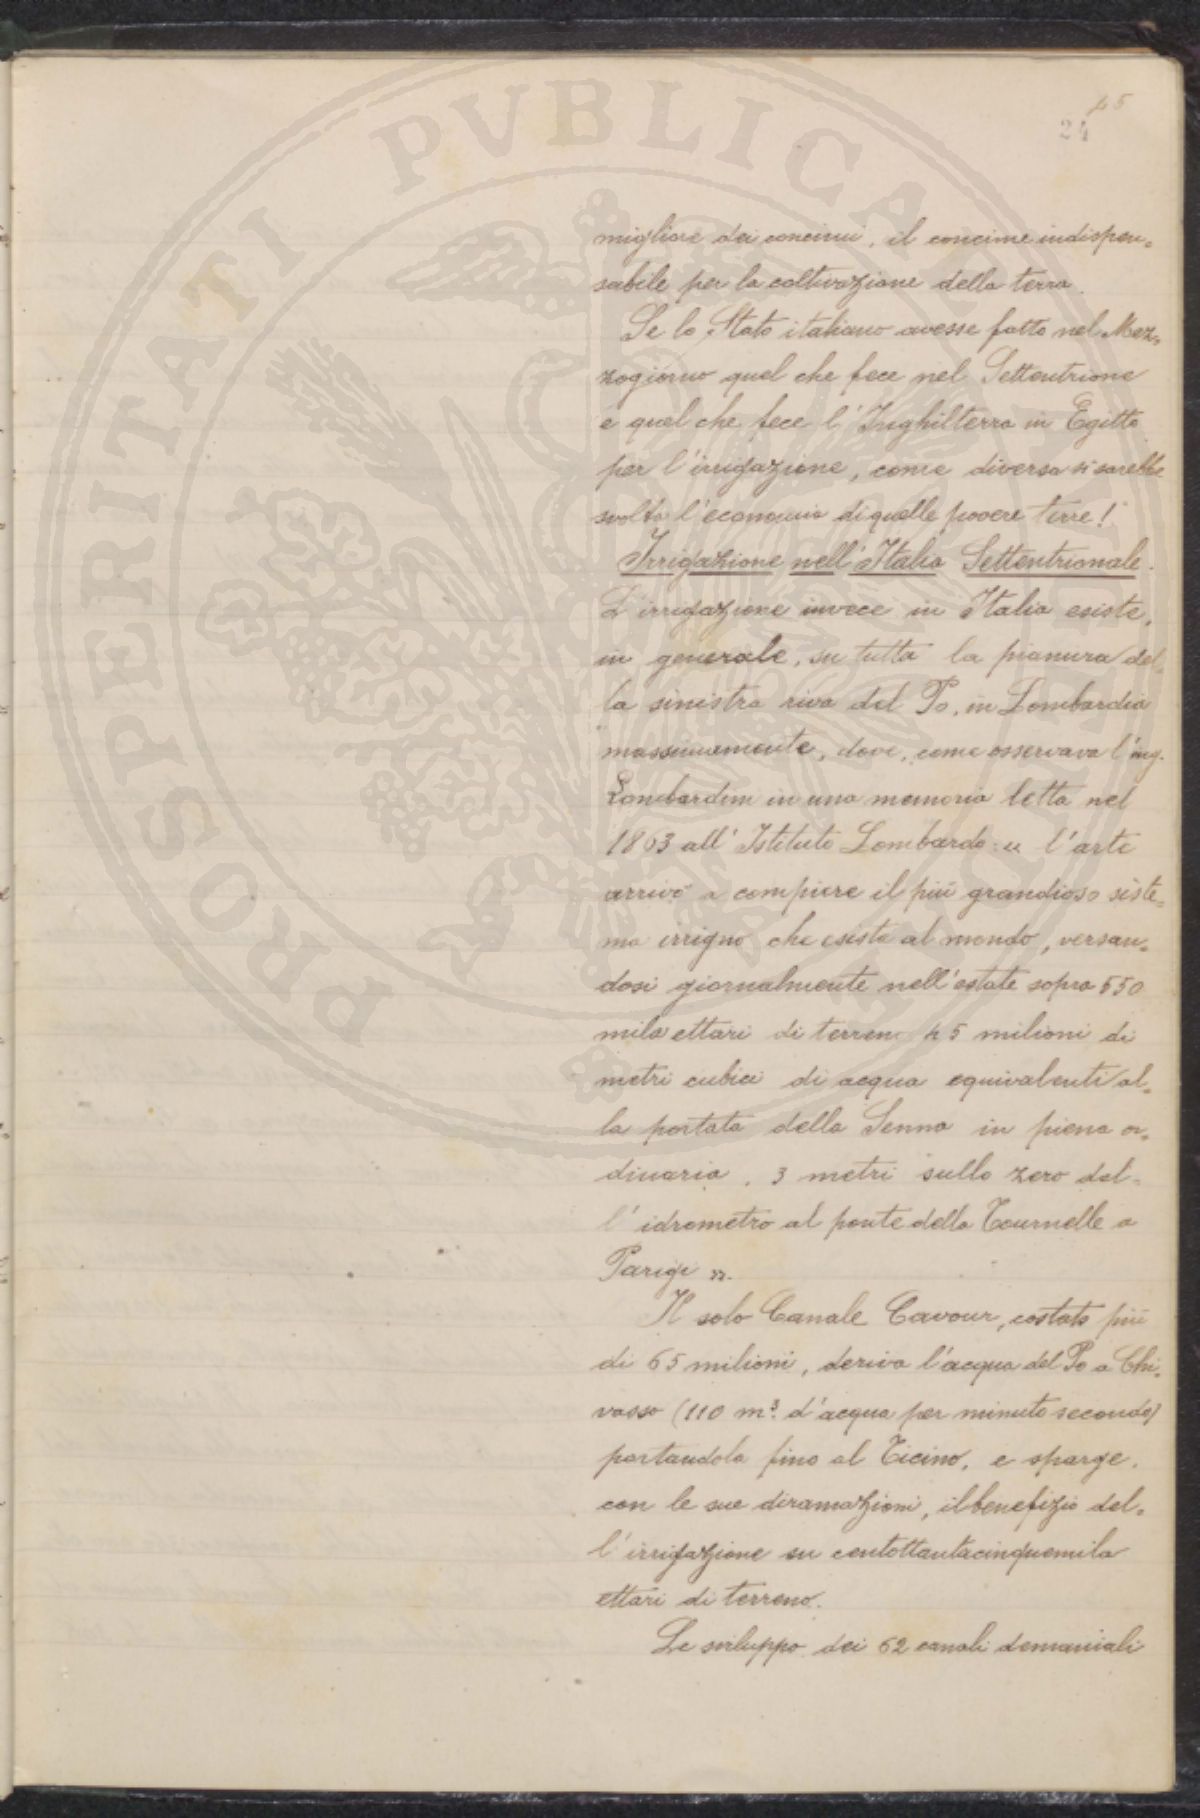 45
24
migliore dei concimi, il concime indispen=
sabile per la coltivazione della terra.
Se lo Stato italiano avesse fatto nel Mez=
zogiorno quel che fece nel Settentrione
e quel che fece l'Inghilterra in Egitto
per l'irrigazione, come diversa si sarebbe
svolta l'economia di quelle povere terre!
Irrigazione nell'Italia Settentrionale.
L'irrigazione invece in Italia esiste,
in generale, su tutta la pianura del=
la sinistra riva del Po, in Lombardia
massimamente, dove, come osservava l'ing.
Lombardini in una memoria letta nel
1863 all'Istituto Lombardo: « l'arte
arrivò a compiere il più grandioso siste=
ma irriguo che esista al mondo, versan=
dosi giornalmente nell'estate sopra 550
mila ettari di terreno 45 milioni di
metri cubici di acqua equivalenti al=
la portata della Senna in piena or=
dinaria, 3 metri sullo zero del=
l'idrometro al ponte della Tournelle a
Parigi ».
Il solo Canale Cavour, costato più
di 65 milioni, deriva l'acqua del Po a Chi=
vasso (110 m³. d'acqua per minuto secondo)
portandola fino al Ticino, e sparge,
con le sue diramazioni, il benefizio del=
l'irrigazione su centottantacinquemila
ettari di terreno.
Lo sviluppo dei 62 canali demaniali
PROSPERITATI PVBLICAE